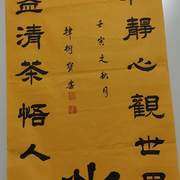 靜心觀世界
壬寅之秋月
盞清茶悟人